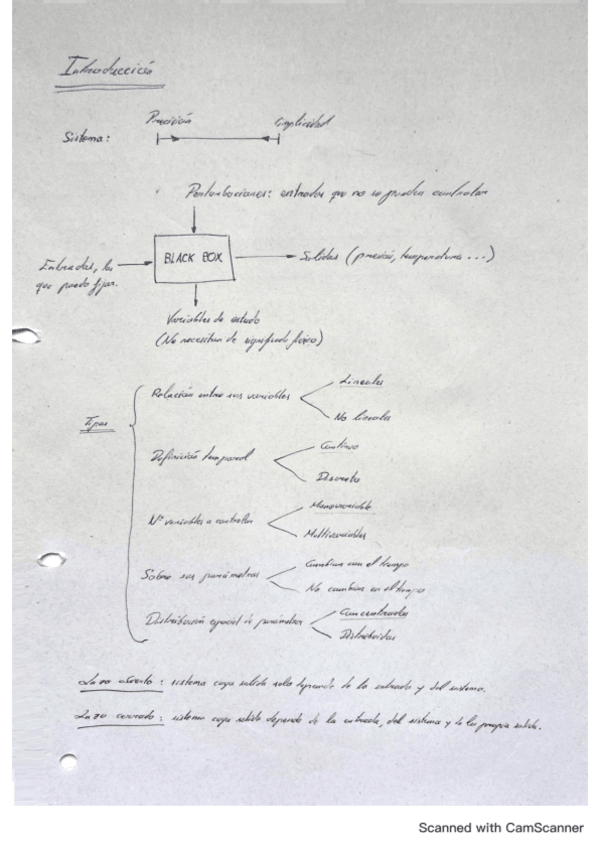 Introducción
Precisión Simplicidad
Sistema:
Perturbaciones: entradas que no se pueden controlar
BLACK BOX
Salidas (presión, temperatura ...)
Entradas, las
que puedo fijar.
Variables de estado
(No necesitan de significado físico)
Tipos
Relación entre sus variables
Lineales
No lineales
Definición temporal
Continuo
Discreto
Nº variables a controlar
Monovariable
Multivariables
Sobre sus parámetros
Cambian con el tiempo
No cambian en el tiempo
Distribución espacial de parámetros
Concentrados
Distribuidos
Lazo abierto: sistema cuya salida solo depende de la entrada y del sistema.
Lazo cerrado: sistema cuya salida depende de la entrada, del sistema y de la propia salida.
Scanned with CamScanner